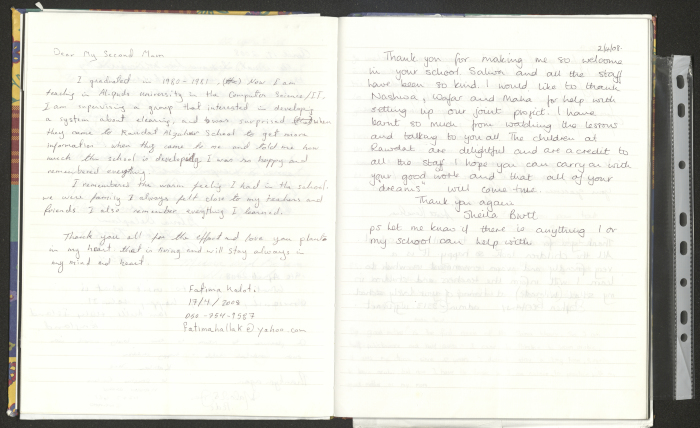 Dear My Second Mum
I graduated in 1980-1981. Now I am
teaching in Alquds university in the Computer Science/IT.
I am supervising a group that interested in developing
a system about clearing, and was surprised when
they came to Rawdat Alzuhur School to get more
information. When they came to me and told me how
much the school is developing I was so happy and
remembered everything.
I remembered the warm feeling I had in the school.
we were family I always felt close to my teachers and
friends I also remember everything I learned.
Thank you all for the effort and love you plants
in my heart that is living and will stay always in
my mind and heart.
Fatima
17/4/2008
054-754-9587
fatimahallak@yahoo.com
2/6/08
Thank you for making me so welcome
in your school. Salwa and all the staff
have been so kind. I would like to thank
Nashwa, Wafar and Maha for help with
setting up our joint project. I have
learnt so much from watching the lessons
and talking to you all. The children at
Rawdat are delightful and are a credit to
all the staff. I hope you can carry on with
your good work and that all of your
"dreams" will come true
Thank you again
Sheila
ps Let me know if there is anything I or
my school can help with.